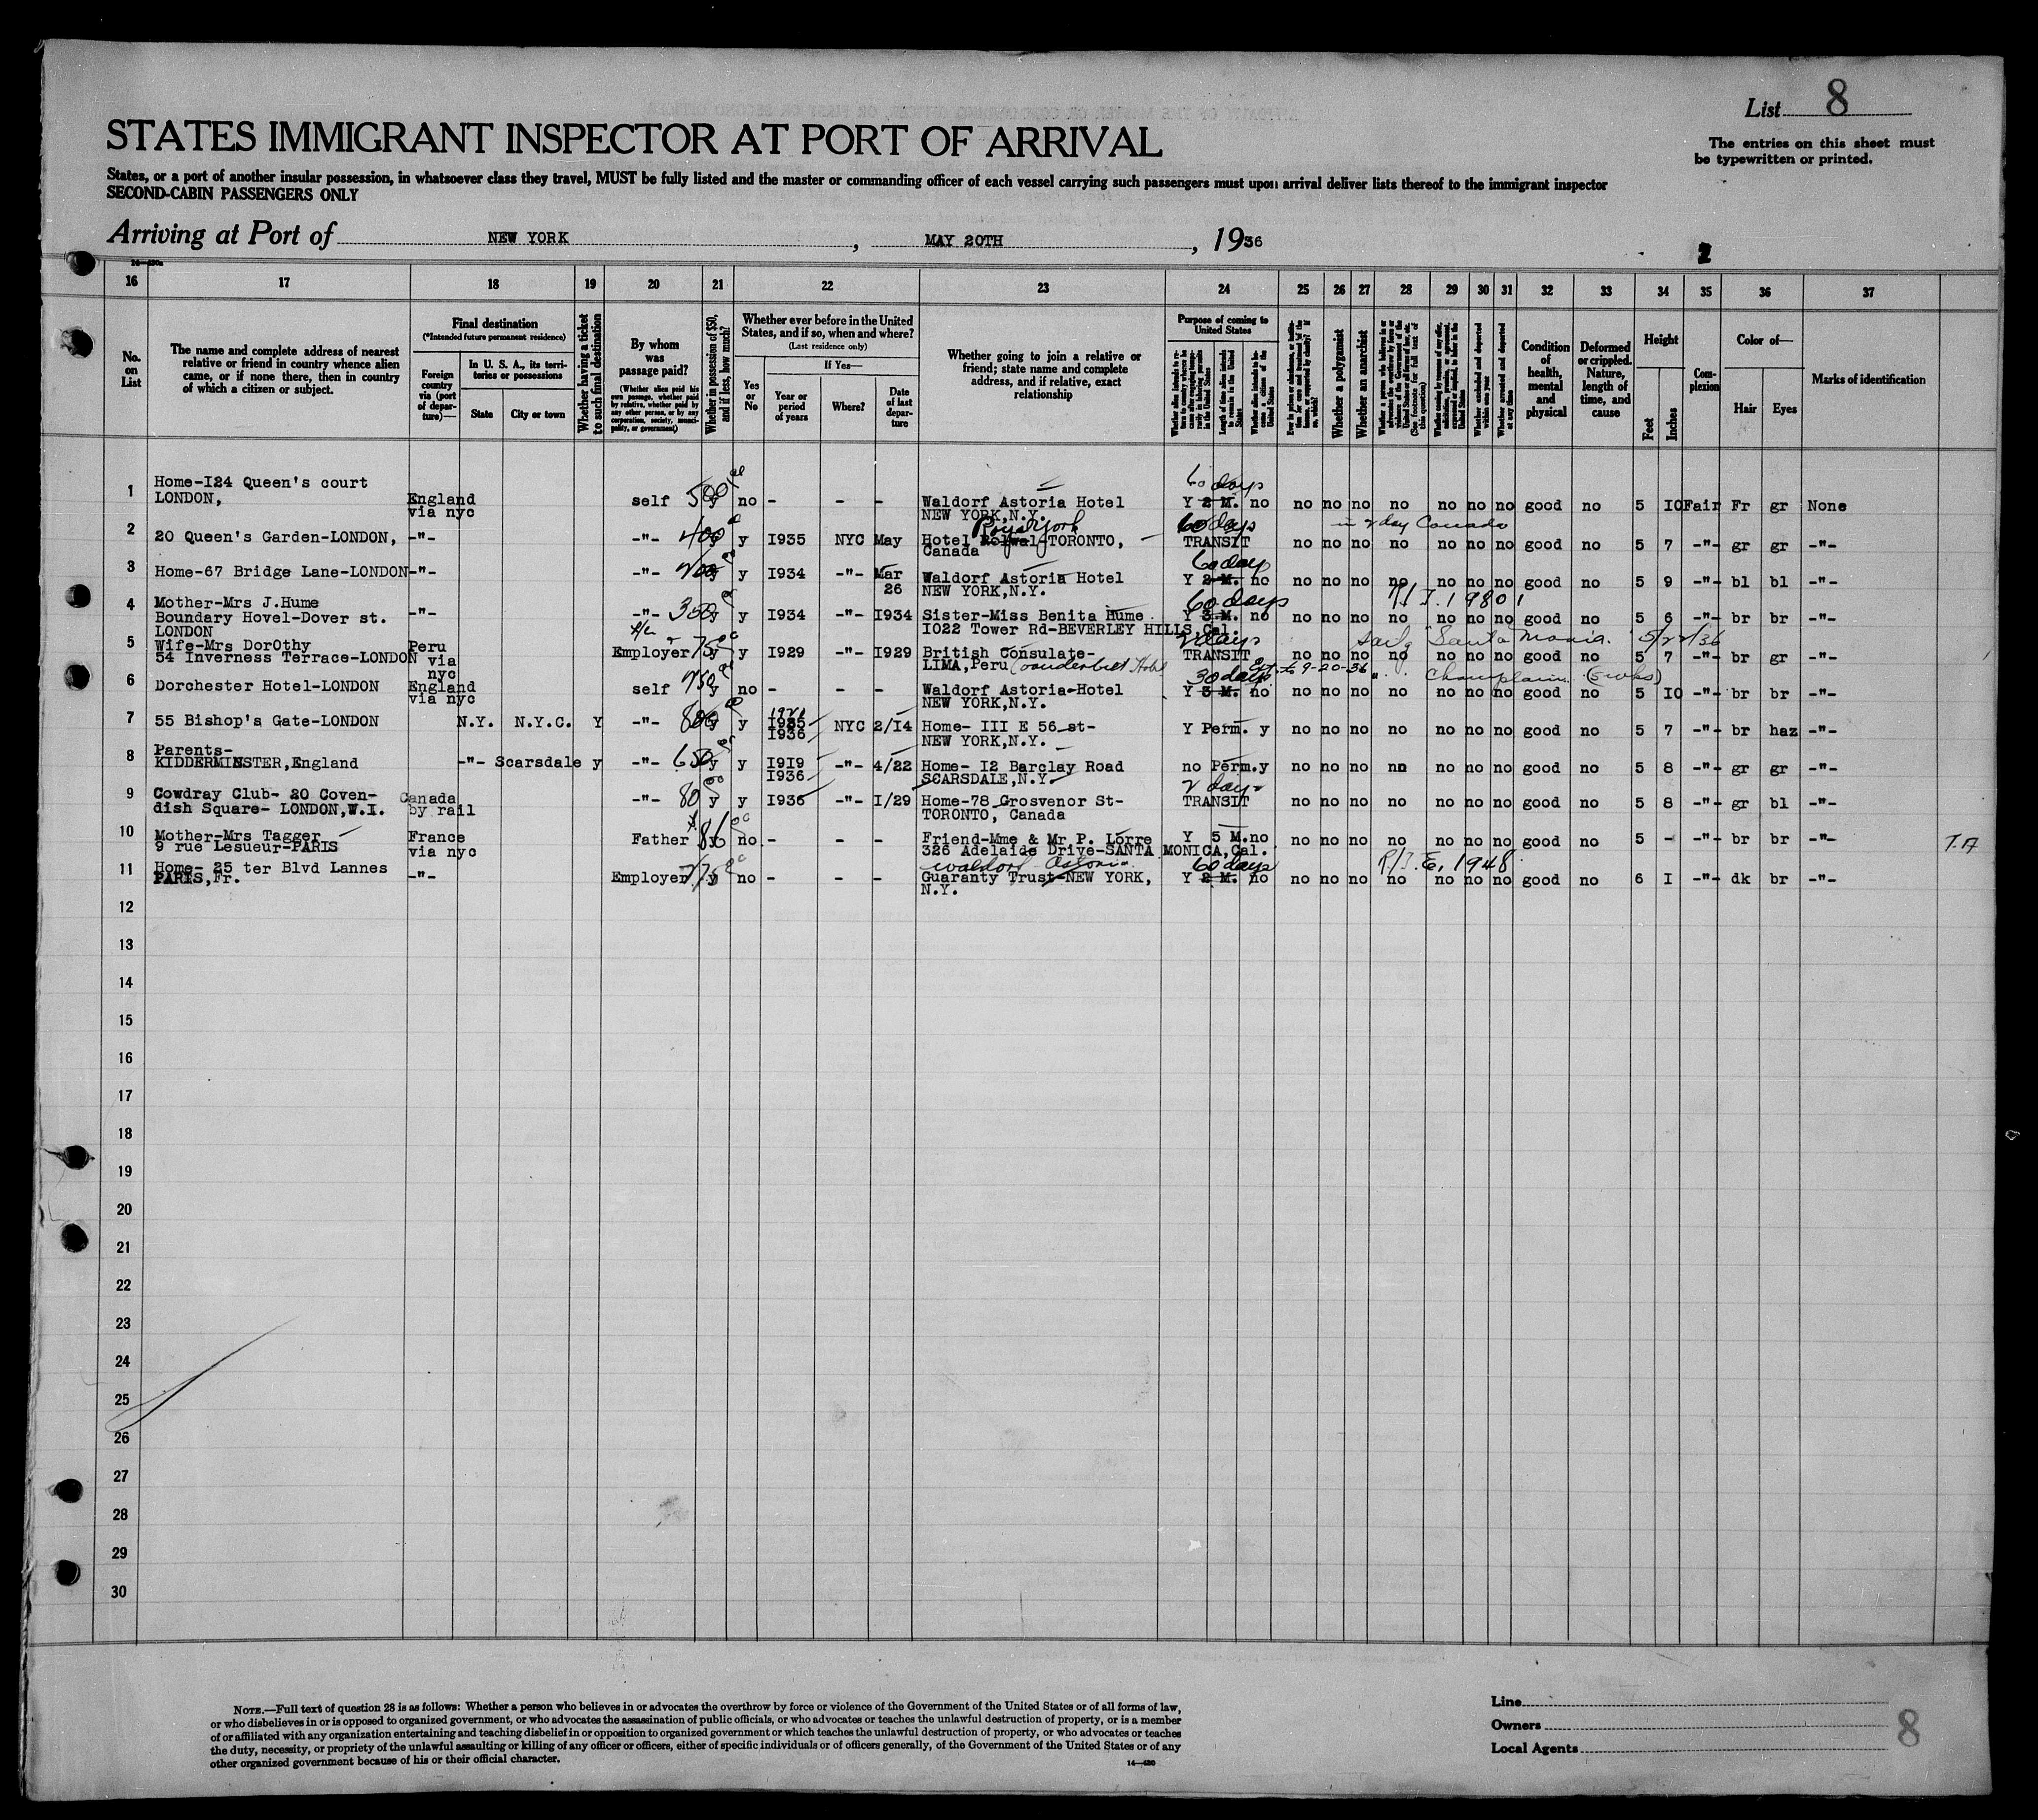 List 8
The entries on this sheet must
be typewritten or printed.
STATES IMMIGRANT INSPECTOR AT PORT OF ARRIVAL
States, or a port of another insular possession, in whatsoever class they travel, MUST be fully listed and the master or commanding officer of each vessel carrying such passengers must upon arrival deliver lists thereof to the immigrant inspector
SECOND-CABIN PASSENGERS ONLY
Arriving at Port of NEW YORK, MAY 20TH, 1936
2
16 17 18 19 20 21 22 23 24 25 26 27 28 29 30 31 32 33 34 35 36 37
No. on List
The name and complete address of nearest relative or friend in country whence alien came, or if none there, then in country of which a citizen or subject.
Final destination
(*Intended future permanent residence)
Foreign country via (port of departure)—
In U. S. A., its territories or possessions
State
City or town
Whether having a ticket to such final destination
By whom was passage paid?
(Whether alien paid his own passage, whether paid by relative, whether paid by any other person, or by any corporation, society, municipality, or government)
Whether in possession of $50, and if less, how much?
Whether ever before in the United States, and if so, when and where?
(Last residence only)
Yes or No
If Yes—
Year or period of years
Where?
Date of last departure
Whether going to join a relative or friend; state name and complete address, and if relative, exact relationship
Purpose of coming to United States
Length of time alien intends to remain in the United States
Whether alien intends to become a citizen of the United States
Whether a polygamist
Whether an anarchist
(See footnote for full text of this question)
Whether excluded and deported within one year
Whether arrested and deported at any time
Condition of health, mental and physical
Deformed or crippled. Nature, length of time, and cause
Height
Feet
Inches
Complexion
Color of—
Hair
Eyes
Marks of identification
1 Home-I24 Queen's court LONDON, England via nyc self 500 y no - - - Waldorf Astoria Hotel NEW YORK,N.Y. 60 days Y 2 M. no no no no no no no no good no 5 IO Fair Fr gr None
2 20 Queen's Garden-LONDON, -"- -"- 400 y y I935 NYC May Hotel Royal York TORONTO, Canada 60 days TRANSIT in 2 day Canada no no no no no no no good no 5 7 -"- gr gr -"-
3 Home-67 Bridge Lane-LONDON -"- -"- 200 y y I934 -"- Mar 26 Waldorf Astoria Hotel NEW YORK,N.Y. 60 days Y 2 M. no no no no no no no no good no 5 9 -"- bl bl -"-
4 Mother-Mrs J.Hume Boundary Hovel-Dover st. LONDON -"- -"- 350 y y I934 -"- I934 Sister-Miss Benita Hume I022 Tower Rd-BEVERLEY HILLS,Cal. 60 days Y 3 M. no no no no no no no no good no 5 6 -"- br br -"-
5 Wife-Mrs DorOthy 54 Inverness Terrace-LONDON Peru via nyc Employer 75 y y I929 -"- I929 British Consulate- LIMA,Peru Vanderbilt Hotel 2 days TRANSIT Santa Maria 5/22/36 no no no no no no no good no 5 7 -"- br gr -"-
6 Dorchester Hotel-LONDON England via nyc self 750 y no - - - Waldorf Astoria-Hotel NEW YORK,N.Y. 30 days Ext. to 9-20-36 Champlain Y 3 M. no no no no no no no no good no 5 IO -"- br br -"-
7 55 Bishop's Gate-LONDON N.Y. N.Y.C. Y -"- 800 y y 1921 I935 I936 NYC 2/I4 Home- III E 56 st- NEW YORK,N.Y. Y Perm. y no no no no no no no good no 5 7 -"- br haz -"-
8 Parents- KIDDERMINSTER,England -"- Scarsdale y -"- 650 y y I9I9 I936 -"- 4/22 Home- I2 Barclay Road SCARSDALE,N.Y. no Perm.y no no no no no no no good no 5 8 -"- gr gr -"-
9 Cowdray Club- 20 Coven- dish Square- LONDON,W.I. Canada by rail -"- 80 y y I936 -"- I/29 Home-78 Grosvenor St- TORONTO, Canada 2 days TRANSIT no no no no no no no good no 5 8 -"- gr bl -"-
10 Mother-Mrs Tagger 9 rue Lesueur-PARIS France via nyc Father $86 no - - - Friend-Mme & Mr P. Lorre 326 Adelaide Drive-SANTA MONICA,Cal. Y 5 M.no no no no no no no no good no 5 - -"- br br -"-
11 Home- 25 ter Blvd Lannes PARIS,Fr. -"- Employer 775 y no - - - Waldorf Astoria Guaranty Trust-NEW YORK, N.Y. 60 days R/I.E, 1948 Y 2 M. no no no no no no no no good no 6 I -"- dk br -"-
12
13
14
15
16
17
18
19
20
21
22
23
24
25
26
27
28
29
30
NOTE.—Full text of question 28 is as follows: Whether a person who believes in or advocates the overthrow by force or violence of the Government of the United States or of all forms of law,
or who disbelieves in or is opposed to organized government, or who advocates the assassination of public officials, or who advocates or teaches the unlawful destruction of property, or is a member
of or affiliated with any organization entertaining and teaching disbelief in or opposition to organized government or which teaches the unlawful destruction of property, or who advocates or teaches
the duty, necessity, or propriety of the unlawful assaulting or killing of any officer or officers, either of specific individuals or of officers generally, of the Government of the United States or of any
other organized government because of his or their official character.
14—480
Line
Owners
Local Agents
8